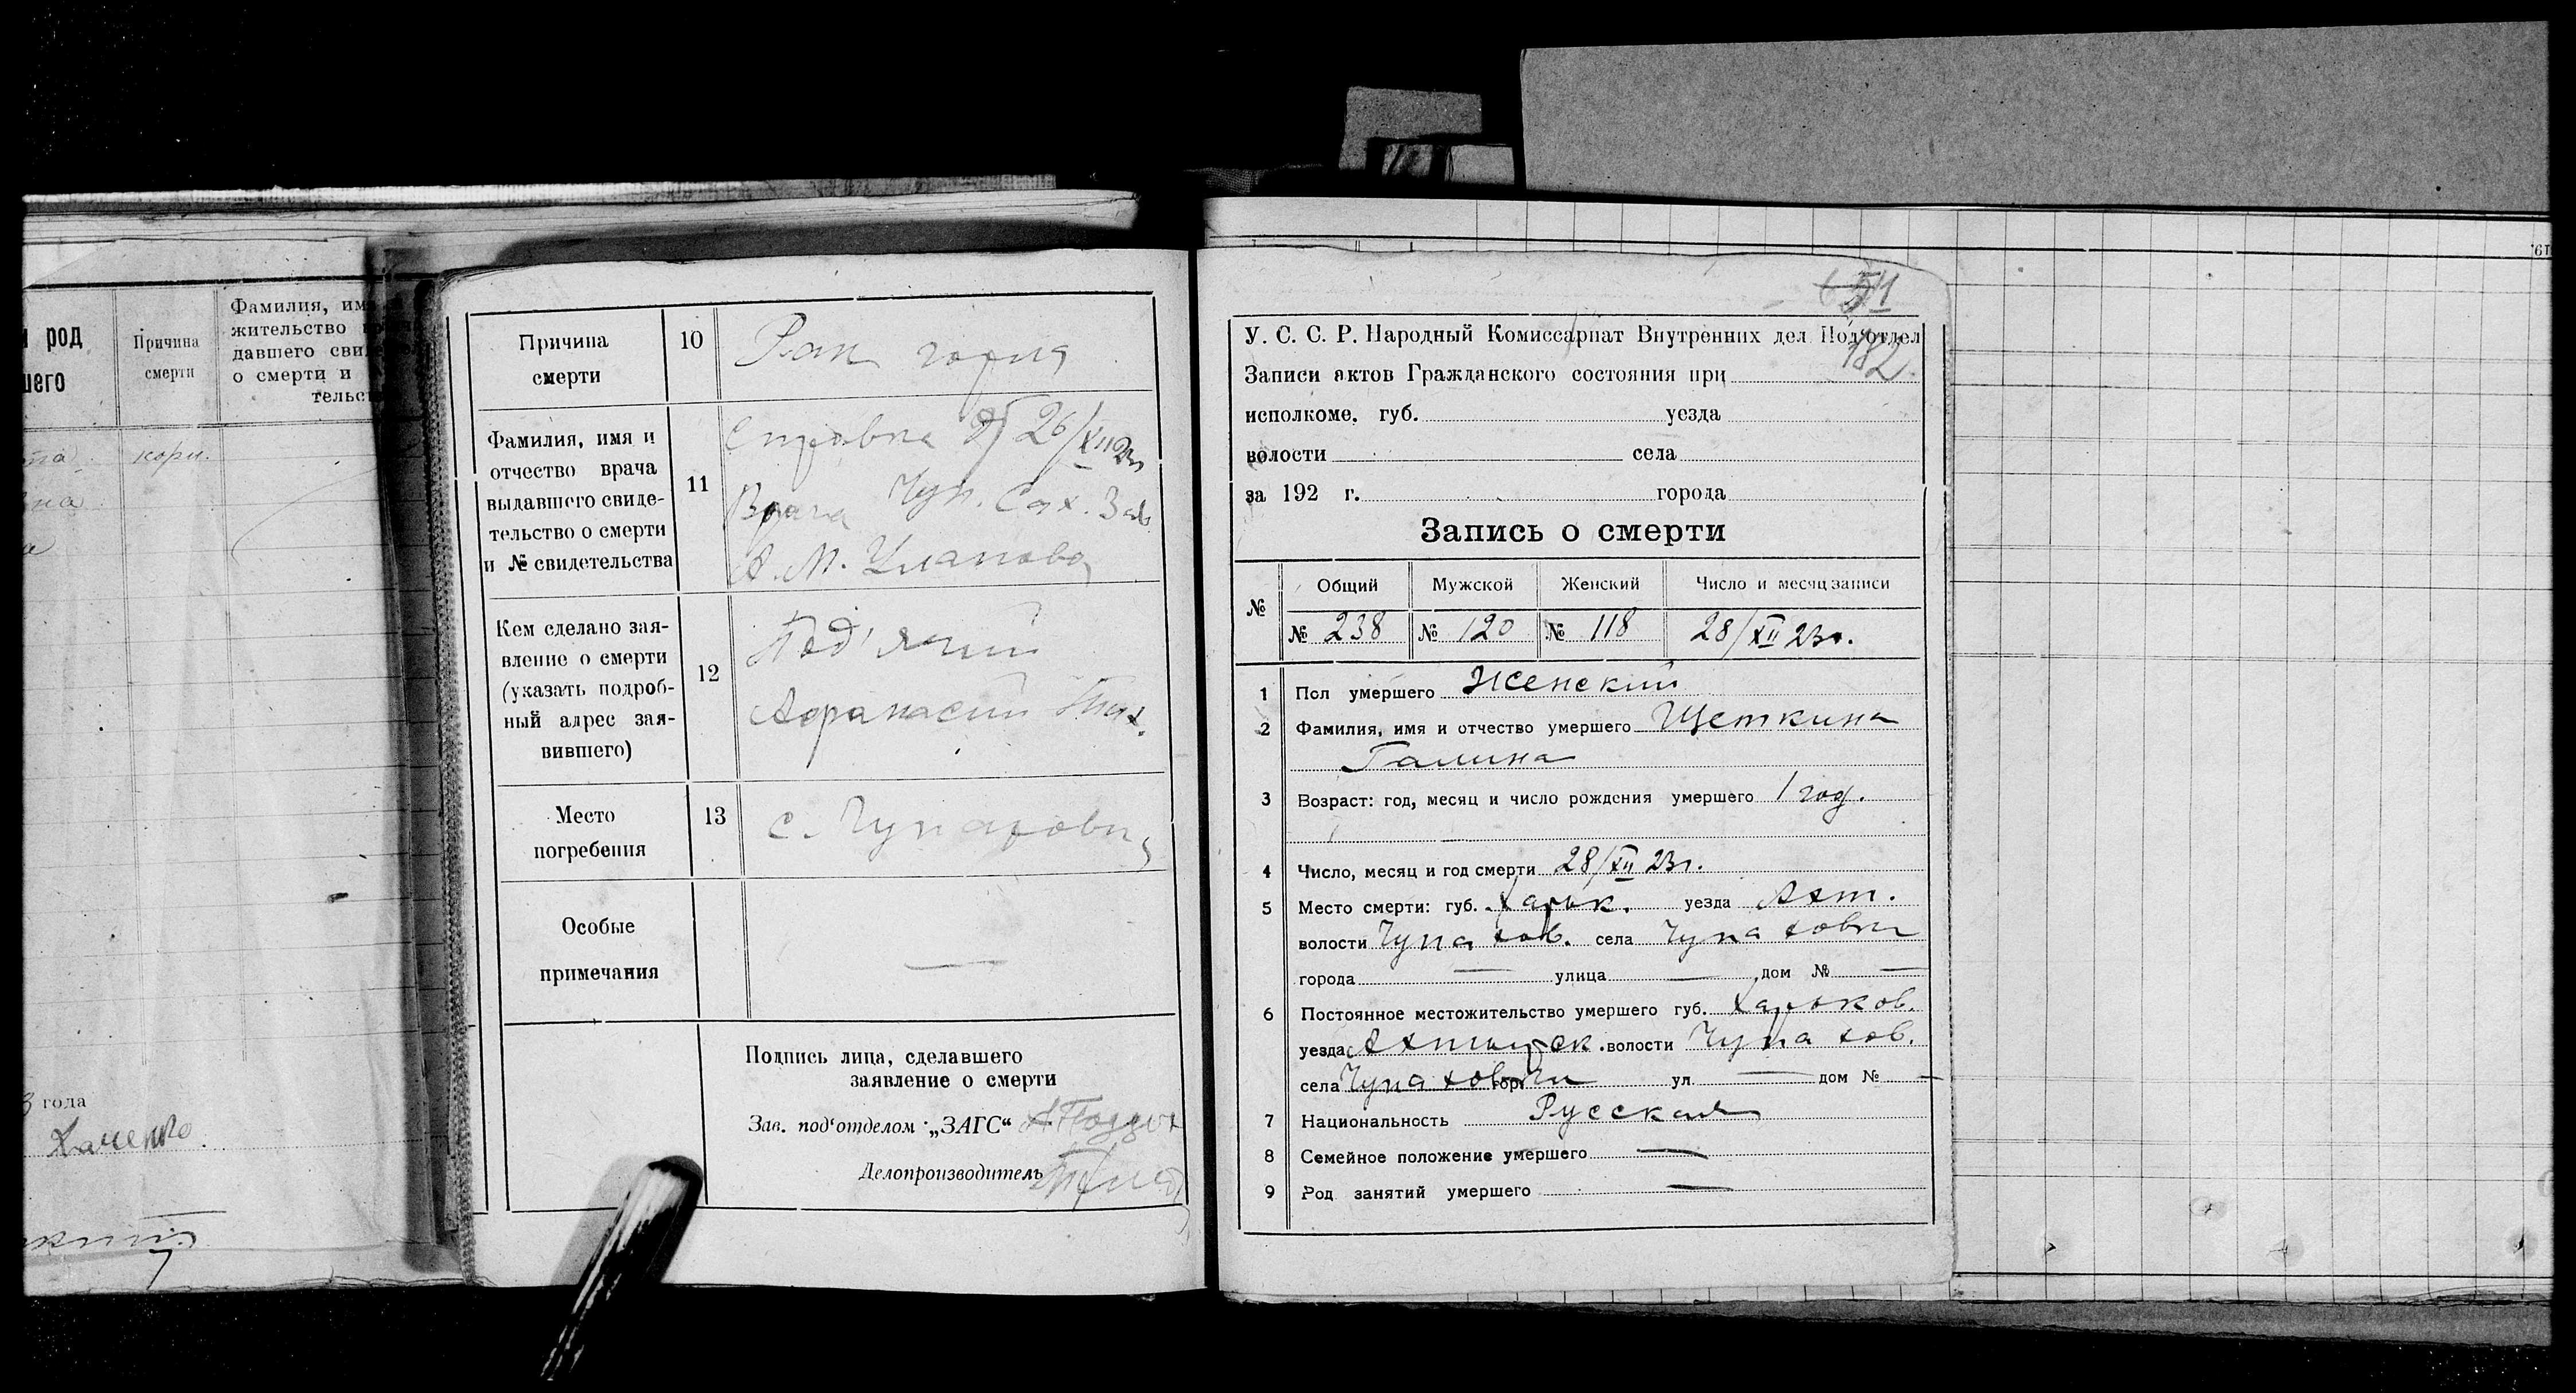 род
шего
Причина
смерти
Фамилия, им
жительство
давшего сви
о смерти и
тельс
кори.
года
Причина
смерти
10
Рак горла
Фамилия, имя и
отчество врача
выдавшего свиде-
тельство о смерти
и № свидетельства
11
Справка от 26/XII 23г
Врача Чуп. Сах. Зав
А. М. Уманова
Кем сделано зая-
вление о смерти
(указать подроб-
ный адрес зая-
вившего)
12
Под'ячий
Афанасий Тих.
Место
погребения
13
с. Чупаховка
Особые
примечания
—
Подпись лица, сделавшего
заявление о смерти
Зав. под'отделом „ЗАГС“
Делопроизводитель
51
182
У. С. С. Р. Народный Комиссариат Внутренних дел Под'отдел
Записи актов Гражданского состояния при
исполкоме, губ. уезда
волости села
за 192 г. города
Запись о смерти
№ Общий Мужской Женский Число и месяц записи
№ 238 № 120 № 118 28/XII 23г.
1 Пол умершего Женский
2 Фамилия, имя и отчество умершего Щеткина
Галина
3 Возраст: год, месяц и число рождения умершего 1 год.
4 Число, месяц и год смерти 28/XII 23г.
5 Место смерти: губ. Харьк. уезда Ахт.
волости Чупахов. села Чупаховки
города — улица — дом № —
6 Постоянное местожительство умершего губ. Харьков.
уезда Ахтырск. волости Чупахов.
села Чупаховки гор. ул. — дом № —
7 Национальность Русская
8 Семейное положение умершего —
9 Род занятий умершего —